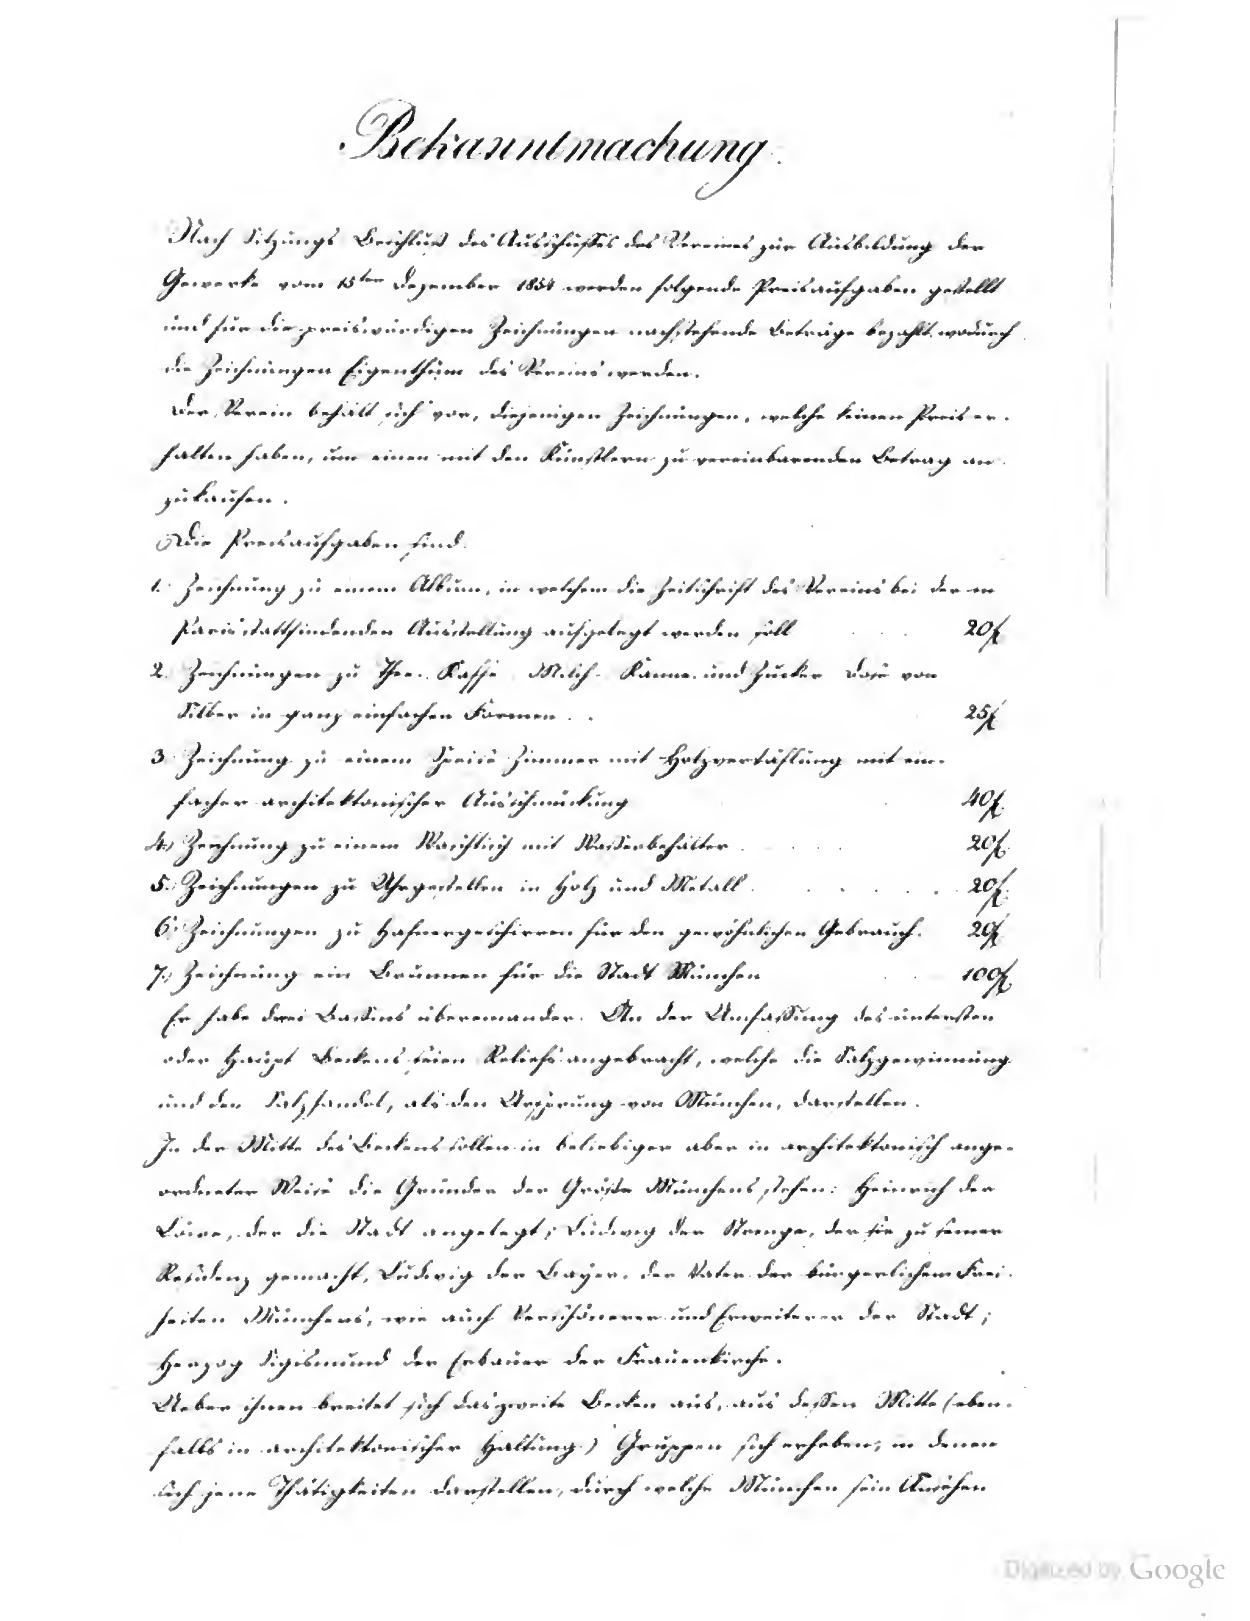 Bekanntmachung.
Nach Sitzungs Beschluß des Ausschußes des Vereines zur Ausbildung der
Gewerke vom 15ten Dezember 1854 werden folgende Preisaufgaben gestellt
und für die preiswürdigen Zeichnungen nachstehende Beträge bezahlt, wodurch
die Zeichnungen Eigenthum des Vereins werden.
Der Verein behält sich vor, diejenigen Zeichnungen, welche keinen Preis er-
halten haben, um einen mit den Künstlern zu vereinbarenden Betrag an-
zukaufen.
Die Preisaufgaben sind:
1. Zeichnung zu einem Album, in welchem die Zeitschrift des Vereins bei der in
Paris stattfindenden Ausstellung aufgelegt werden soll . . . 20f
2. Zeichnungen zu Thee- Kaffe- Milch- Kanne und Zucker Dose von
Silber in ganz einfachen Formen . . 25f
3. Zeichnung zu einem Speise Zimmer mit Holzvertäflung mit ein-
facher architektonischer Ausschmückung 40f.
4.) Zeichnung zu einem Waschtisch mit Wasserbehälter . . . . . 20f.
5.) Zeichnungen zu Uhrgestellen in Holz und Metall . . . . . . 20f.
6.) Zeichnungen zu Hafnergeschirren für den gewöhnlichen Gebrauch. 20f
7.) Zeichnung ein Brunnen für die Stadt München . . 100f
Er habe drei Bassins übereinander. An der Umfaßung des untersten
oder Haupt Beckens seien Reliefs angebracht, welche die Salzgewinnung
und den Salzhandel, als den Ursprung von München, darstellen.
In der Mitte des Beckens sollen in beliebiger aber in architektonisch ange-
ordneter Weise die Gründer der Größe Münchens stehen: Heinrich der
Löwe, der die Stadt angelegt; Ludwig der Strenge, der sie zu seiner
Residenz gemacht, Ludwig der Bayer, der Vater der bürgerlichen Frei-
heiten Münchens, wie auch Verschönerer und Erweiterer der Stadt;
Herzog Sigismund der Erbauer der Frauenkirche.
Ueber ihnen breitet sich das zweite Becken aus, aus dessen Mitte (eben-
falls in architektonischer Haltung) Gruppen sich erheben, in denen
sich jene Thätigkeiten darstellen, durch welche München sein Ansehen
Digitized by Google